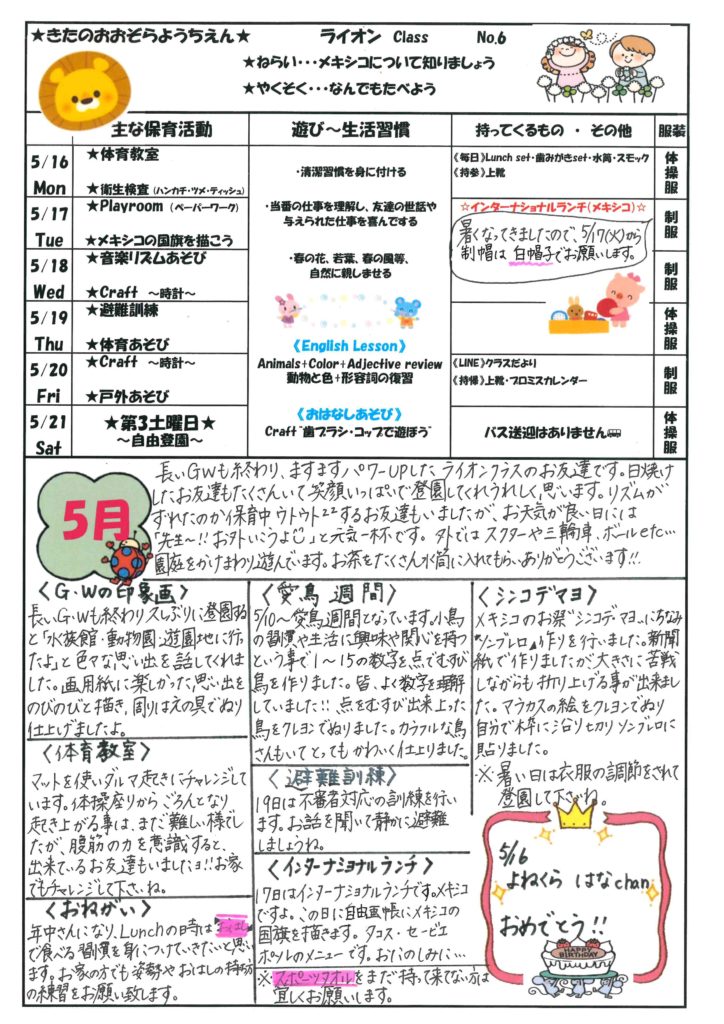 ★きたのおおぞらようちえん★ ライオン Class No.6
★ねらい・・・メキシコについて知りましょう
★やくそく・・・なんでもたべよう
主な保育活動 遊び～生活習慣 持ってくるもの ・ その他 服装
5/16 Mon
★体育教室
★衛生検査（ハンカチ・ツメ・ティッシュ）
・清潔習慣を身に付ける
《毎日》Lunch set・歯みがきset・水筒・スモック
《持参》上靴
体操服
5/17 Tue
★Playroom （ペーパーワーク）
★メキシコの国旗を描こう
・当番の仕事を理解し、友達の世話や
与えられた仕事を喜んでする
☆インターナショナルランチ(メキシコ)☆
暑くなってきましたので、5/17(火)から
制帽は 白帽子でお願いします。
制服
5/18 Wed
★音楽リズムあそび
★Craft ～時計～
・春の花、若葉、春の風等、
自然に親しませる
制服
5/19 Thu
★避難訓練
★体育あそび
《English Lesson》
体操服
5/20 Fri
★Craft ～時計～
★戸外あそび
Animals+Color+Adjective review
動物と色+形容詞の復習
《LINE》クラスだより
《持帰》上靴・プロミスカレンダー
制服
5/21 Sat
★第3土曜日★
～自由登園～
《おはなしあそび》
Craft“歯ブラシ・コップで遊ぼう”
バス送迎はありません
体操服
5月
長いGWも終わり、ますますパワーUPしたライオンクラスのお友達です。日焼け
したお友達もたくさんいて笑顔いっぱいで登園してくれうれしく思います。リズムが
ずれたのか保育中ウトウトzzするお友達もいましたが、お天気が良い日には
「先生～!!お外いこうよ」と元気一杯です。外ではスクーターや三輪車、ボールetc…
園庭をかけまわり遊んでいます。お茶をたくさん水筒に入れてもらいありがとうございます!!
〈G・Wの印象画〉
長いG・Wも終わり久しぶりに登園すると
「水族館・動物園・遊園地に行っ
たよ」と色々な思い出を話してくれま
した。画用紙に楽しかった思い出を
のびのびと描き、周りはえの具でぬり
仕上げましたよ。
〈体育教室〉
マットを使いダルマ起きにチャレンジして
います。体操座りからごろんとなり、
起き上がる事は、まだ難しい様でし
たが、腹筋の力を意識すると、
出来ているお友達もいましたョ!!お家
でもチャレンジして下さいね。
〈おねがい〉
年中さんになり、Lunchの時はおはし
で食べる習慣を身につけていきたいと思い
ます。お家の方でも姿勢やおはしの持ち方
の練習をお願い致します。
〈愛鳥週間〉
5/10～愛鳥週間となっています。小鳥
の習慣や生活に興味や関心を持つ
という事で1～15の数字を点でむすび
鳥を作りました。皆、よく数字を理解
していました!!点をむすび出来上った
鳥をクレヨンでぬりました。カラフルな鳥
さんもいてとってもかわいく仕上りました。
〈避難訓練〉
19日は不審者対応の訓練を行い
ます。お話を聞いて静かに避難
しましょうね。
〈インターナショナルランチ〉
17日はインターナショナルランチです。メキシコ
ですよ。この日に自由画帳にメキシコの
国旗を描きます。タコス・セービエ
ポソレのメニューです。おたのしみに…
※スポーツタオルをまだ持って来てない方は
宜しくお願いします。
〈シンコデマヨ〉
メキシコのお祭“シンコデマヨ”にちなみ
“ソンブレロ”作りを行いました。新聞
紙で作りましたが大きさに苦戦
しながらも折り上げる事が出来まし
た。マラカスの絵をクレヨンでぬり
自分で枠に沿りせカリソンブレロに
貼りました。
※暑い日は衣服の調節をされて
登園して下さいね。
5/16
よねくら はなchan
おめでとう!!
HAPPY BIRTHDAY